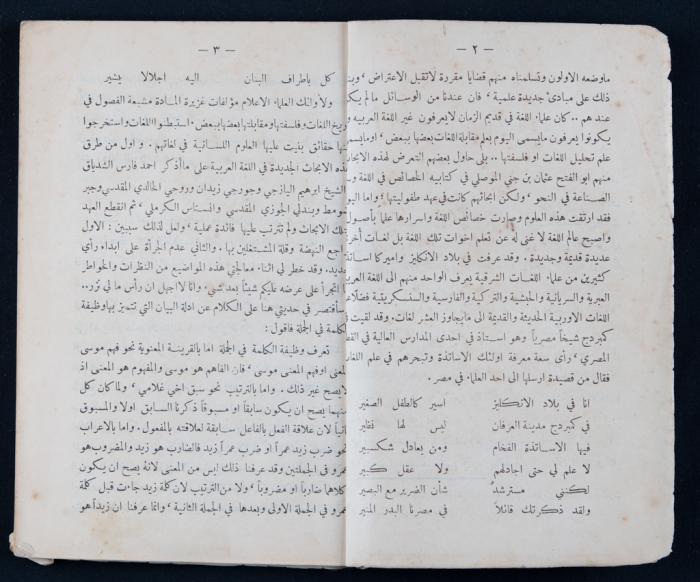 — ٢ —
ماوضعه الاولون وتسلمناه منهم قضايا مقررة لاتقبل الاعتراض ، وبن
ذلك على مبادئ جديدة علمية ، فان عندنا من الوسائل مالم يك
عندهم .. كان علماء اللغة في قديم الزمان لايعرفون غير اللغة العربيه و
يكونوا يعرفون مايسمى اليوم بعلم مقابلة اللغات بعضها ببعض ، اومايسم
علم تحليل اللغات او فلسفتها .. بلى حاول بعضهم التعرض لهذه الابحاث
منهم ابو الفتح عثمان بن جني الموصلي في كتابيه الخصائص في اللغة و
الصناعة في النحو ، ولكن ابحاثهم كانت في عهد طفوليتها ، واما اليو
فقد ارتقت هذه العلوم وصارت خصائص اللغة واسرارها علما بأصول
واصبح عالم اللغة لا غنى له عن تعلم اخوات تلك اللغة بل لغات أخر
عديدة قديمة وجديدة . وقد عرفت في بلاد الانكليز واميركا اساتذ
كثيرين من علماء اللغات الشرقية يعرف الواحد منهم الى اللغة العربية
العبرية والسريانية والحبشية والتركية والفارسية والسنسكريتية فضلا ع
اللغات الاوربية الحديثة والقديمة الى مايجاوز العشر لغات . وقد لقيت ف
كمبردج شيخاً مصرياً وهو استاذ في احدى المدارس العالية في القط
المصري ، رأى سعة معرفة اولئك الاساتذة وتبحرهم في علم اللغا
فقال من قصيدة ارسلها الى احد العلماء في مصر .
انا في بلاد الانكليز اسير كالطفل الصغير
في كمبردج مدينة العرفان ليس لها نظير
فيها الاساتذة الفخام ومن يعادل شكسبير
لا علم لي حتى اجادلهم ولا عقل كبير
لكنني مسترشد شأن الضرير مع البصير
ولقد ذكرتك قائلاً في مصرنا البدر المنير
— ٣ —
كل باطراف البنان اليه اجلالا يشير
ولأولئك العلماء الاعلام مؤلفات غزيرة المادة مشبعة الفصول في
ريخ اللغات وفلسفتها ومقابلتها بعضها ببعض . استبطنوا اللغات واستخرجوا
نها حقائق بنيت عليها العلوم اللسانية في لغاتهم . و اول من طرق
هذه الابحاث الجديدة في اللغة العربية على ما اذكر احمد فارس الشدياق
الشيخ ابرهيم اليازجي وجورجي زيدان وروحي الخالدي المقدسي وجبر
ضومط وبندلي الجوزي المقدسي وانستاس الكرملي ، ثم انقطع العهد
تلك الابحاث ولم تترتب عليها فائدة عملية ، ولعل لذلك سببين : الاول
راجع النهضة وقلة المشتغلين بها . والثاني عدم الجرأة على ابداء رأي
جديد. وقد خطر لي اثناء معالجتي هذه المواضيع من النظرات والخواطر
ا اتجرأ على عرضه عليكم شيئاً بعد شيء . وانا لا اجهل ان رأس ما لي نزر..
سأقتصر في حديثي هنا على الكلام عن ادلة البيان التي تتميز بها وظيفة
الكلمة في الجملة فاقول :
تعرف وظيفة الكلمة في الجملة اما بالقرينة المعنوية نحو فهم موسى
لمعنى اوفهم المعنى موسى ، فان الفاهم هو موسى والمفهوم هو المعنى اذ
لايصح غير ذلك . واما بالترتيب نحو سبق اخي غلامي ، ولما كان كل
منهما يصح ان يكون سابقاً او مسبوقاً ذكرنا السابق اولا والمسبوق
ثانياً لان علاقة الفعل بالفاعل سابقة لعلاقته بالمفعول . واما بالاعراب
نحو ضرب زيد عمراً او ضرب عمراً زيد فالضارب هو زيد والمضروب هو
عمرو في الجملتين وقد عرفنا ذلك ليس من المعنى لانه يصح ان يكون
كلاهما ضارباً او مضروباً ، ولا من الترتيب لان كلمة زيد جاءت قبل كلمة
عمرو في الجملة الاولى وبعدها في الجملة الثانية ، وانما عرفنا ان زيداً هو